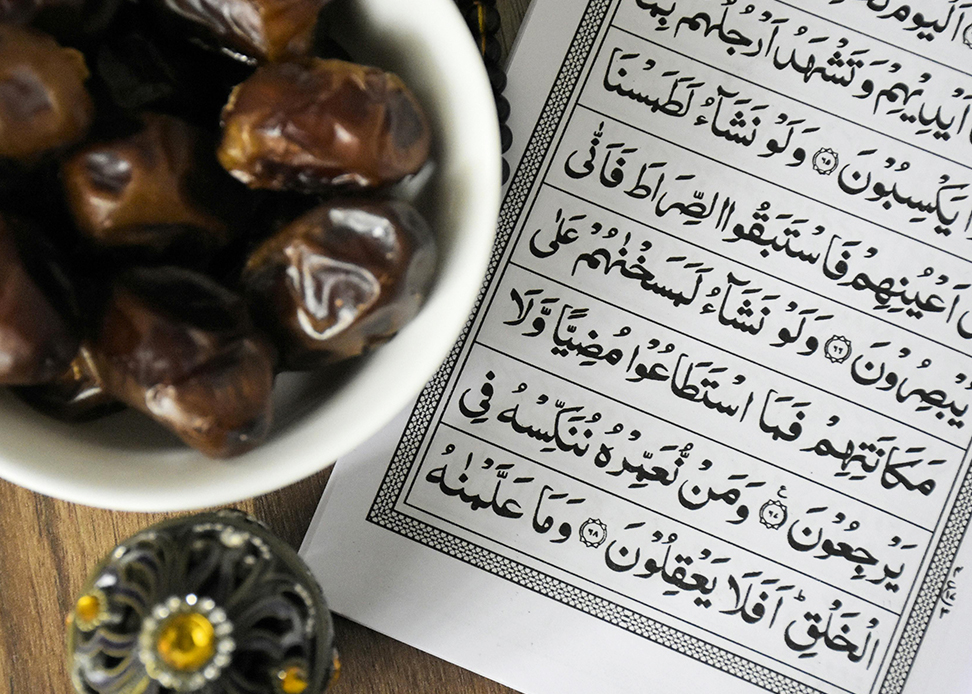 اَلْيَوْمَ
اَيْدِيْهِمْ وَتَشْهَدُ اَرْجُلُهُمْ بِمَا
يَكْسِبُوْنَ ۶۵ وَلَوْ نَشَآءُ لَطَمَسْنَا
اَعْيُنِهِمْ فَاسْتَبَقُوا الصِّرَاطَ فَاَنّٰى
يُبْصِرُوْنَ ۶۶ وَلَوْ نَشَآءُ لَمَسَخْنٰهُمْ عَلٰى
مَكَانَتِهِمْ فَمَا اسْتَطَاعُوْا مُضِيًّا وَّلَا
يَرْجِعُوْنَ ۶۷ وَمَنْ نُّعَمِّرْهُ نُنَكِّسْهُ فِى
الْخَلْقِ ؕ اَفَلَا يَعْقِلُوْنَ ۶۸ وَمَا عَلَّمْنٰهُ